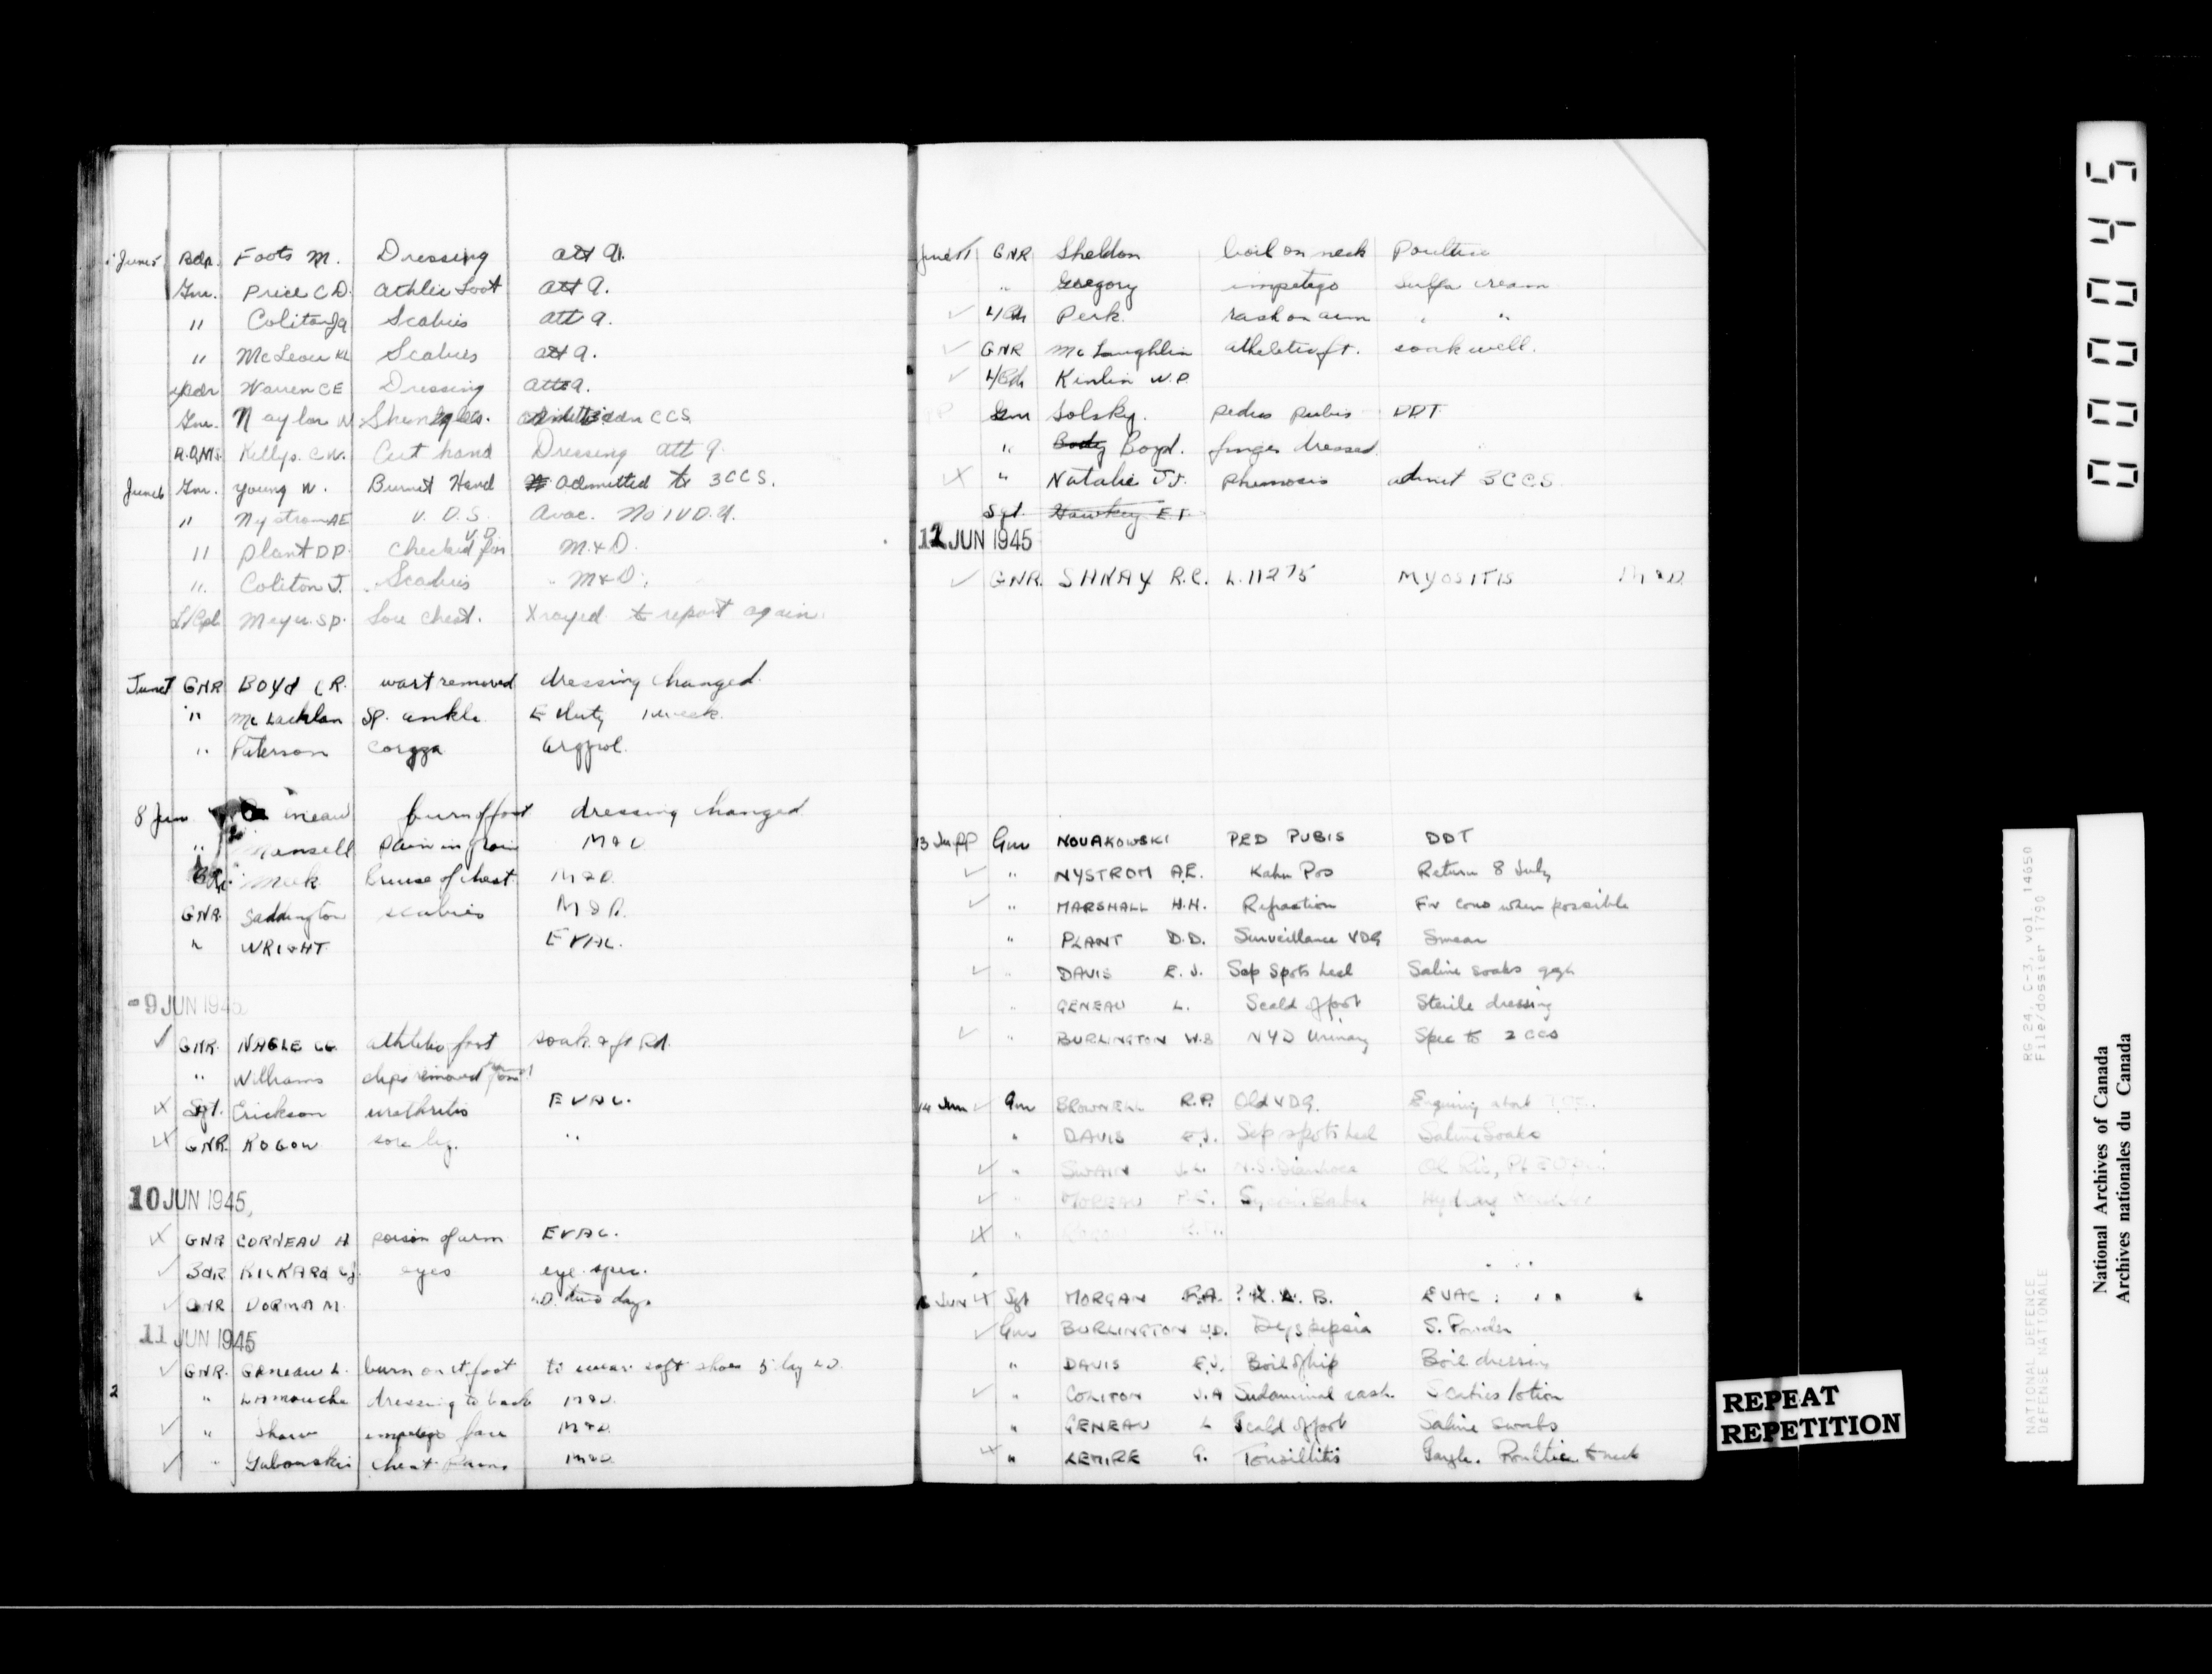 June 5 Bdr. Foots M. Dressing att A.
Gnr. Price C D. Athlete foot att A.
" Coliton JA Scabies att A.
" McLeow KL Scabies att A.
L/Bdr Warren C E Dressing att A.
Gnr. Naylor W CCS
R.Q.M.S. Kellys. C W. Cut hand Dressing att A.
June 6 Gnr. Young W. Burnt Hand Admitted to 3 CCS.
" Nystrom AE V. D. S. Avac. No 1 V D. H.
" Plant D P. Checked for V.D. M. & D.
" Coliton J. Scabies " M & D.
L/Cpl Meyer. S P. Sore Chest. Xrayed to report again.
June 7 GNR BOYd C R. wart removed dressing changed.
" McLachlan SP. ankle. E duty 1 week.
" Paterson coryza argyrol.
8 Jun ineau burn of foot dressing changed
" Mansell Pain in groin M & D
Meek bruise of chest. M & D.
GNR. Saddington scabies M & D.
" WRIGHT EVAC.
-9 JUN 1945
GNR. NAGLE athletic foot soak & ft Rd.
" Williams clips removed from
Sgt. Erickson urethritis EVAC.
GNR. ROGOW sore leg. "
10 JUN 1945
GNR CORNEAU A poison of arm EVAC.
BdR RICKARd eyes eye. spec.
GNR DORMA M. L.D. two days
11 JUN 1945
GNR. Geneau L. burn on rt foot to wear soft shoes 5 day L D.
2 " LAmouche dressing to back M & D.
" Shaw impetigo face M & D
" Gubowskis chest pains M & D
June 11 GNR Sheldon boil on neck Poultice
" Gregory impetigo sulfa cream
L/Bdr Perk. rash on arm " "
GNR McLaughlin atheletic ft. soak well.
L/Bdr Kinlin W.P.
Gnr Solsky. pedic pubis DDT
" Body Boyd. finger dressed.
" Natalie J.J. phimosis admit 3 CCS
Sgt. Hawkey E.F.
12 JUN 1945
GNR. SHNAY R.C. L. 11275 MYOSITIS M & D.
13 Jun PP Gnr NOVAKOWSKI PED PUBIS DDT
" NYSTROM A.E. Kahn Pos Return 8 July
" MARSHALL H.H. Refraction For Cons when possible
" PLANT D.D. Surveillance VDG Smear
" DAVIS E.J. Sep Spots heel Saline soaks
" GENEAU L. Scald of foot Sterile dressing
" BURLINGTON W.B NYD Urinary Spec to 2 CCS
14 Jun Gnr BROWNELL R.P. Old VDG. Enquiry about
" DAVIS E.J. Sep spots heel Saline Soaks
" SWAIN J.L. N.S. Diarrhoea
" MOREAU P.E.
"
JUN Sgt MORGAN F.A. EVAC
Gnr BURLINGTON W.D. Dyspepsia S. Powder
" DAVIS E.J. Boil of hip Boil dressing
" COLITON J.A Sudaminal rash. Scabies lotion
" GENEAU L Scald of foot Saline swabs
" LEMIRE G. Tonsillitis Gargle. Poultice to neck
000045
REPEAT
REPETITION
RG 24, C-3, vol. 14650
File/dossier 1790
NATIONAL DEFENCE
DEFENSE NATIONALE
National Archives of Canada
Archives nationales du Canada